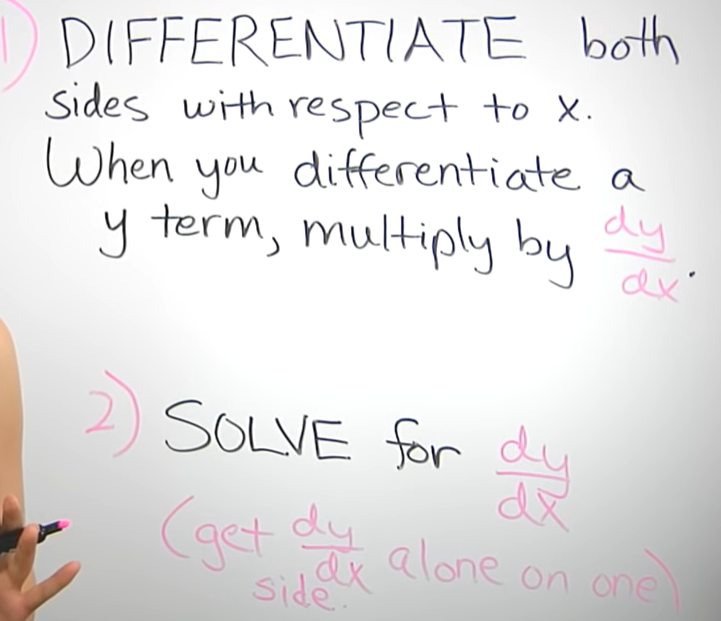 1) DIFFERENTIATE both
sides with respect to x.
When you differentiate a
y term, multiply by dy/dx.
2) SOLVE for dy/dx
(get dy/dx alone on one)
side.